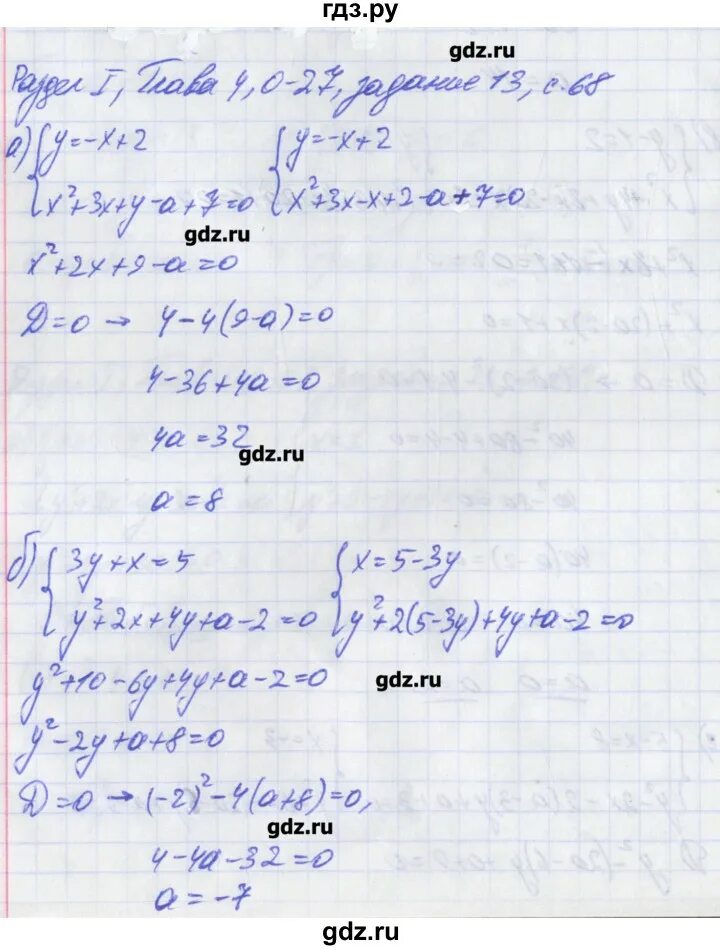 гдз.ру
gdz.ru
Раздел I, Глава 4, О-27, задание 13, с.68
а) { y=-x+2 { y=-x+2
x²+3x+y-a+7=0 x²+3x-x+2-a+7=0
gdz.ru
x²+2x+9-a=0
D=0 → 4-4(9-a)=0
4-36+4a=0
4a=32
gdz.ru
a=8
б) { 3y+x=5 { x=5-3y
y²+2x+4y+a-2=0 y²+2(5-3y)+4y+a-2=0
y²+10-6y+4y+a-2=0
gdz.ru
y²-2y+a+8=0
D=0 → (-2)²-4(a+8)=0,
gdz.ru
4-4a-32=0
a=-7